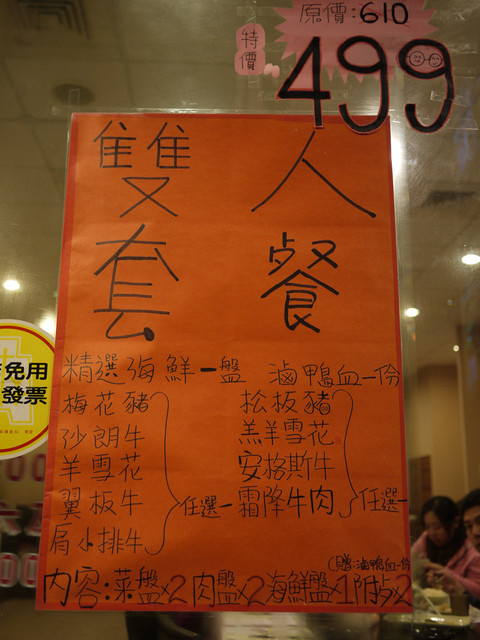 原價:610
特價
499
雙人
套餐
精選海鮮一盤 滷鴨血一份
梅花豬
沙朗牛
羊雪花
翼板牛
肩小排牛
任選一
松板豬
羔羊雪花
安格斯牛
霜降牛肉
任選一
(贈:滷鴨血一份
內容:菜盤x2肉盤x2海鮮盤x1附歺x2
免用
發票